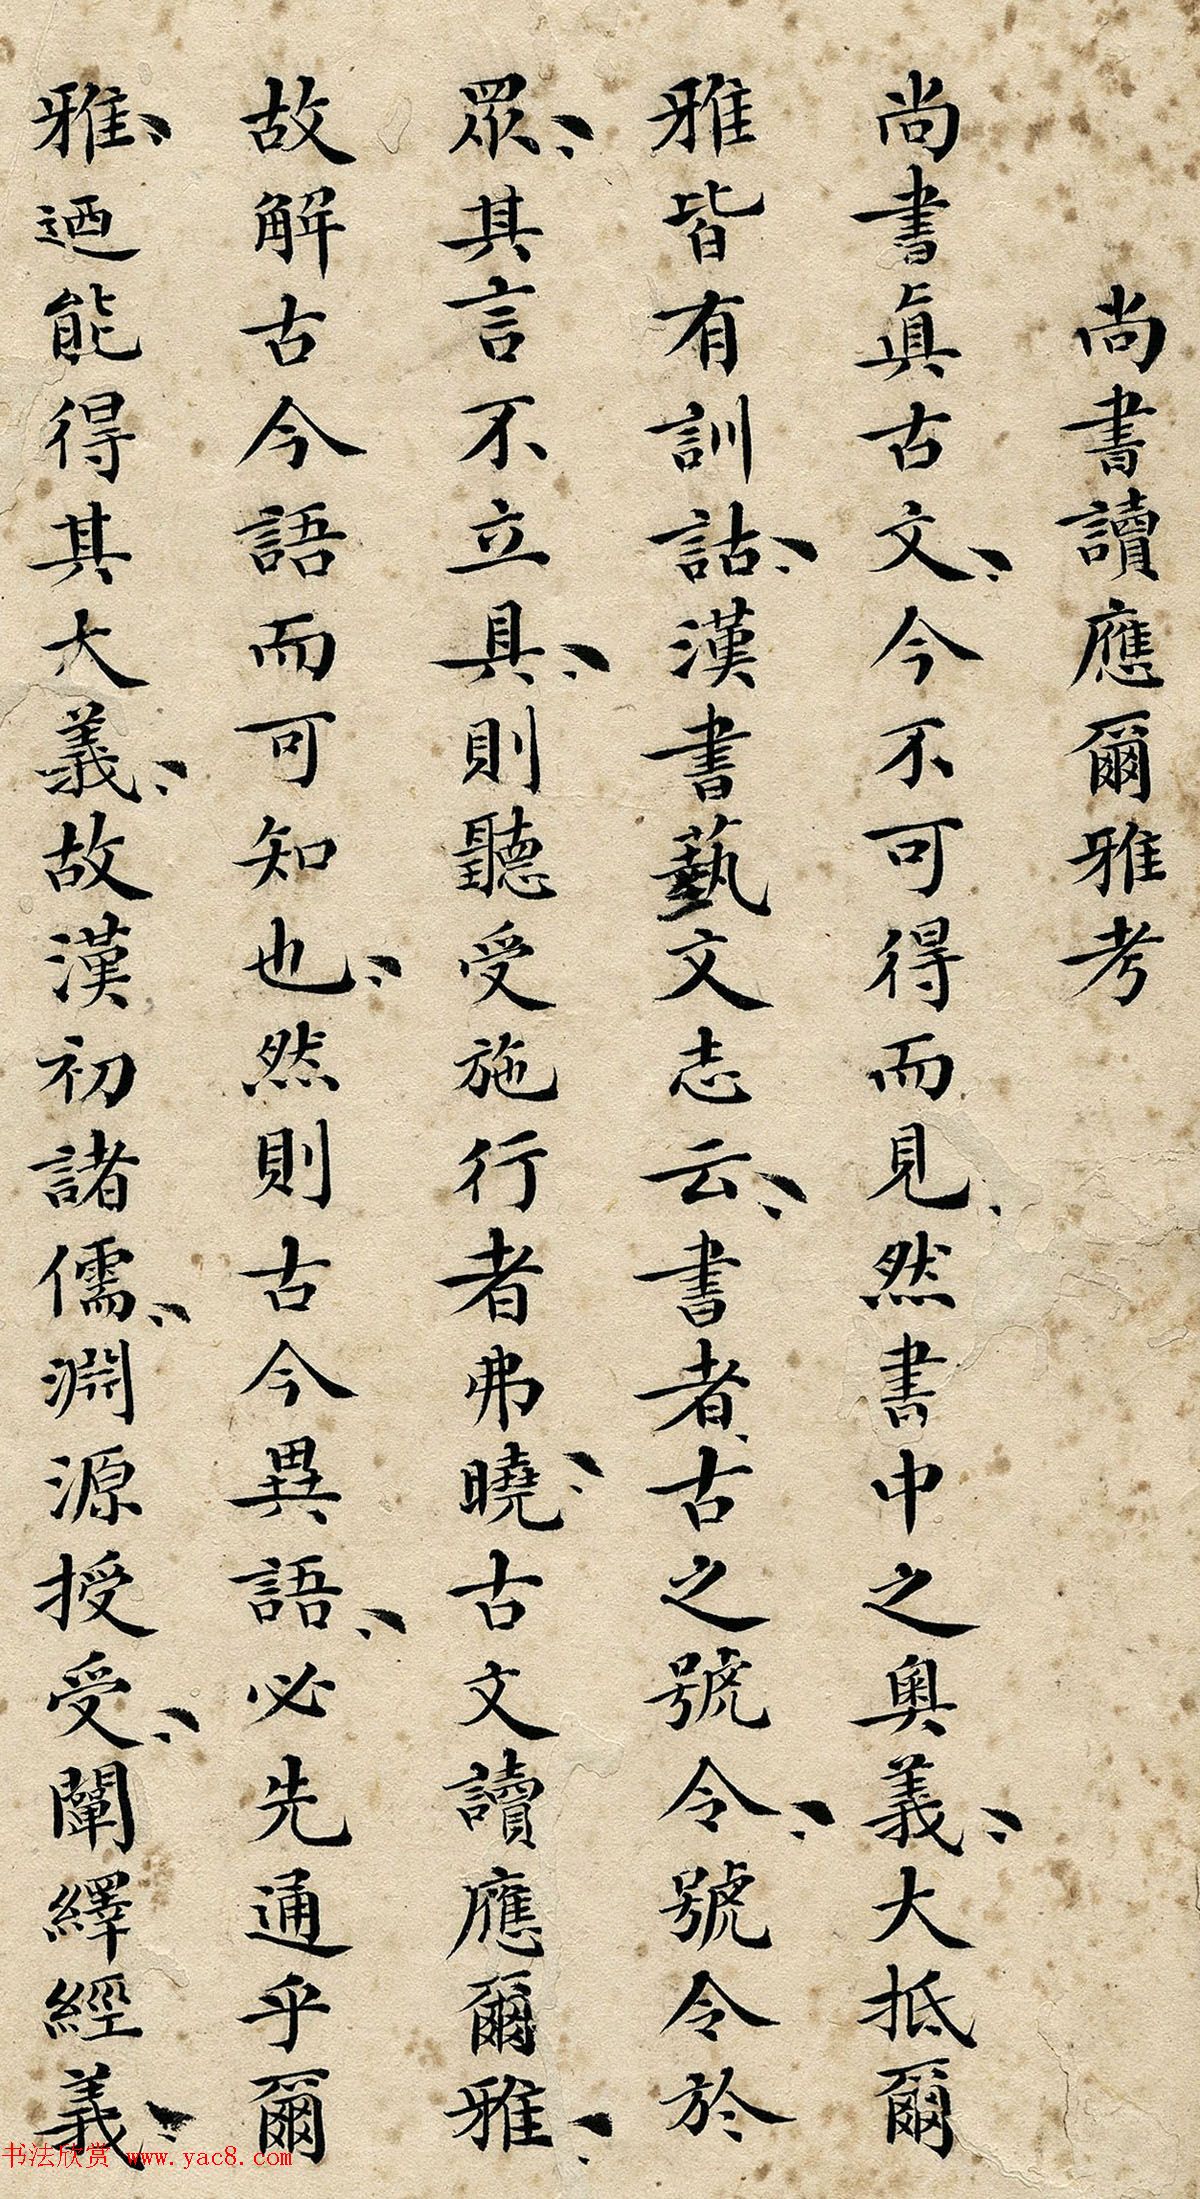 尚書讀應爾雅考
尚書眞古文、今不可得而見、然書中之奧義、大抵爾
雅皆有訓詁、漢書藝文志云、書者、古之號令、號令於
眾、其言不立具、則聽受施行者弗曉、古文讀應爾雅、
故解古今語而可知也、然則古今異語、必先通乎爾
雅、迺能得其大義、故漢初諸儒、淵源授受、闡繹經義、
书法欣赏 www.yac8.com